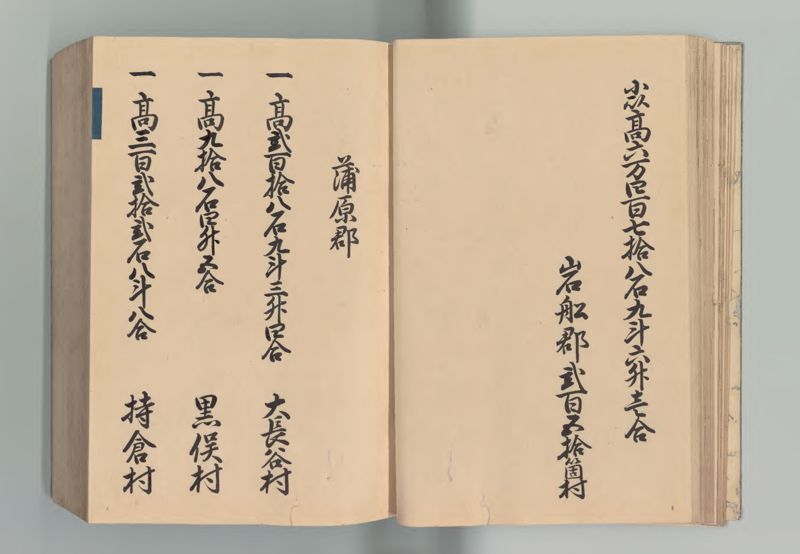 小以高六万四百七拾八石九斗六升壱合
岩船郡弐百五拾箇村
蒲原郡
一高弐百拾八石九斗三升四合
大長谷村
一高九拾八石四升五合
黒俣村
一高三百弐拾弐石八斗八合
持倉村